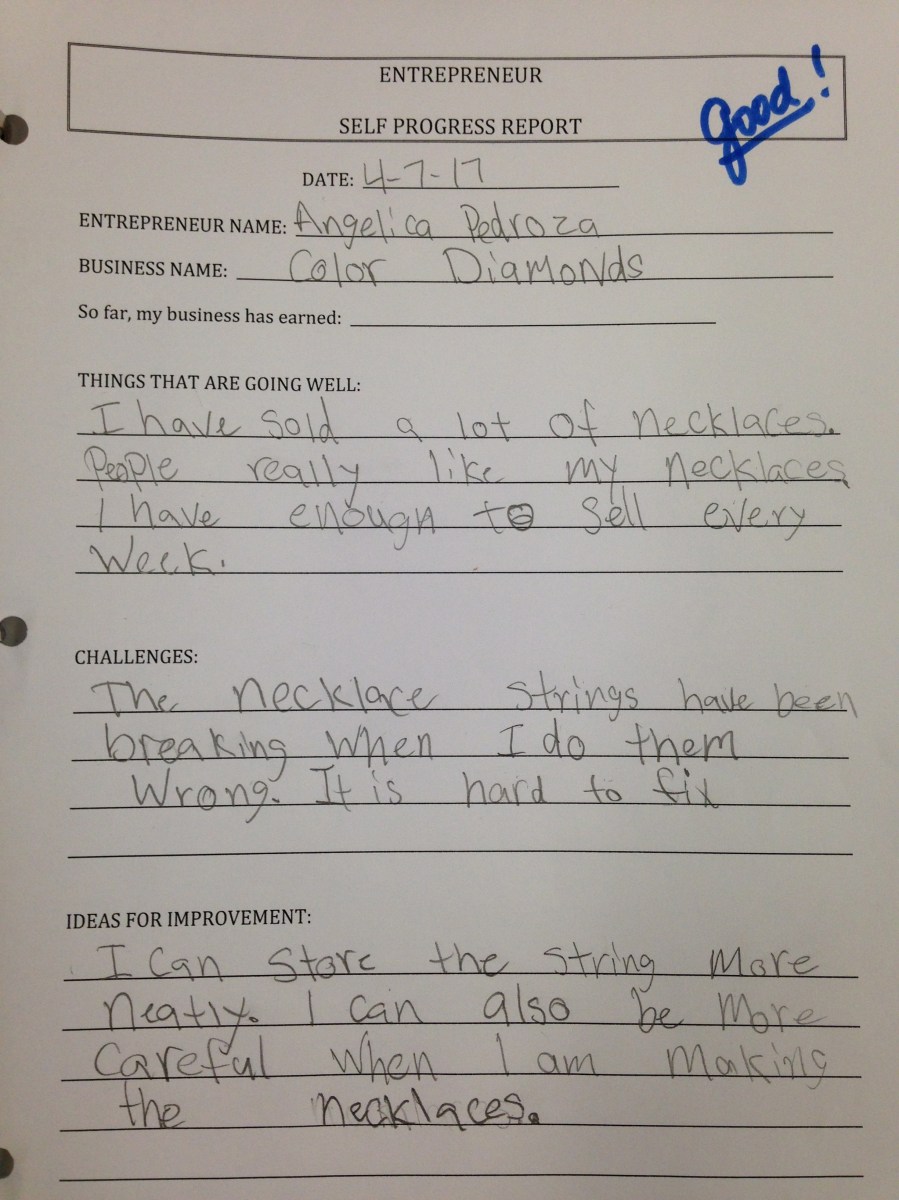 ENTREPRENEUR
good!
SELF PROGRESS REPORT
DATE: 4-7-17
ENTREPRENEUR NAME: Angelica Pedroza
BUSINESS NAME: Color Diamonds
So far, my business has earned:
THINGS THAT ARE GOING WELL:
I have sold a lot of necklaces.
People really like my necklaces
I have enough to sell every
week.
CHALLENGES:
The necklace strings have been
breaking when I do them
wrong. It is hard to fix
IDEAS FOR IMPROVEMENT:
I can store the string more
neatly. I can also be more
careful when I am making
the necklaces.